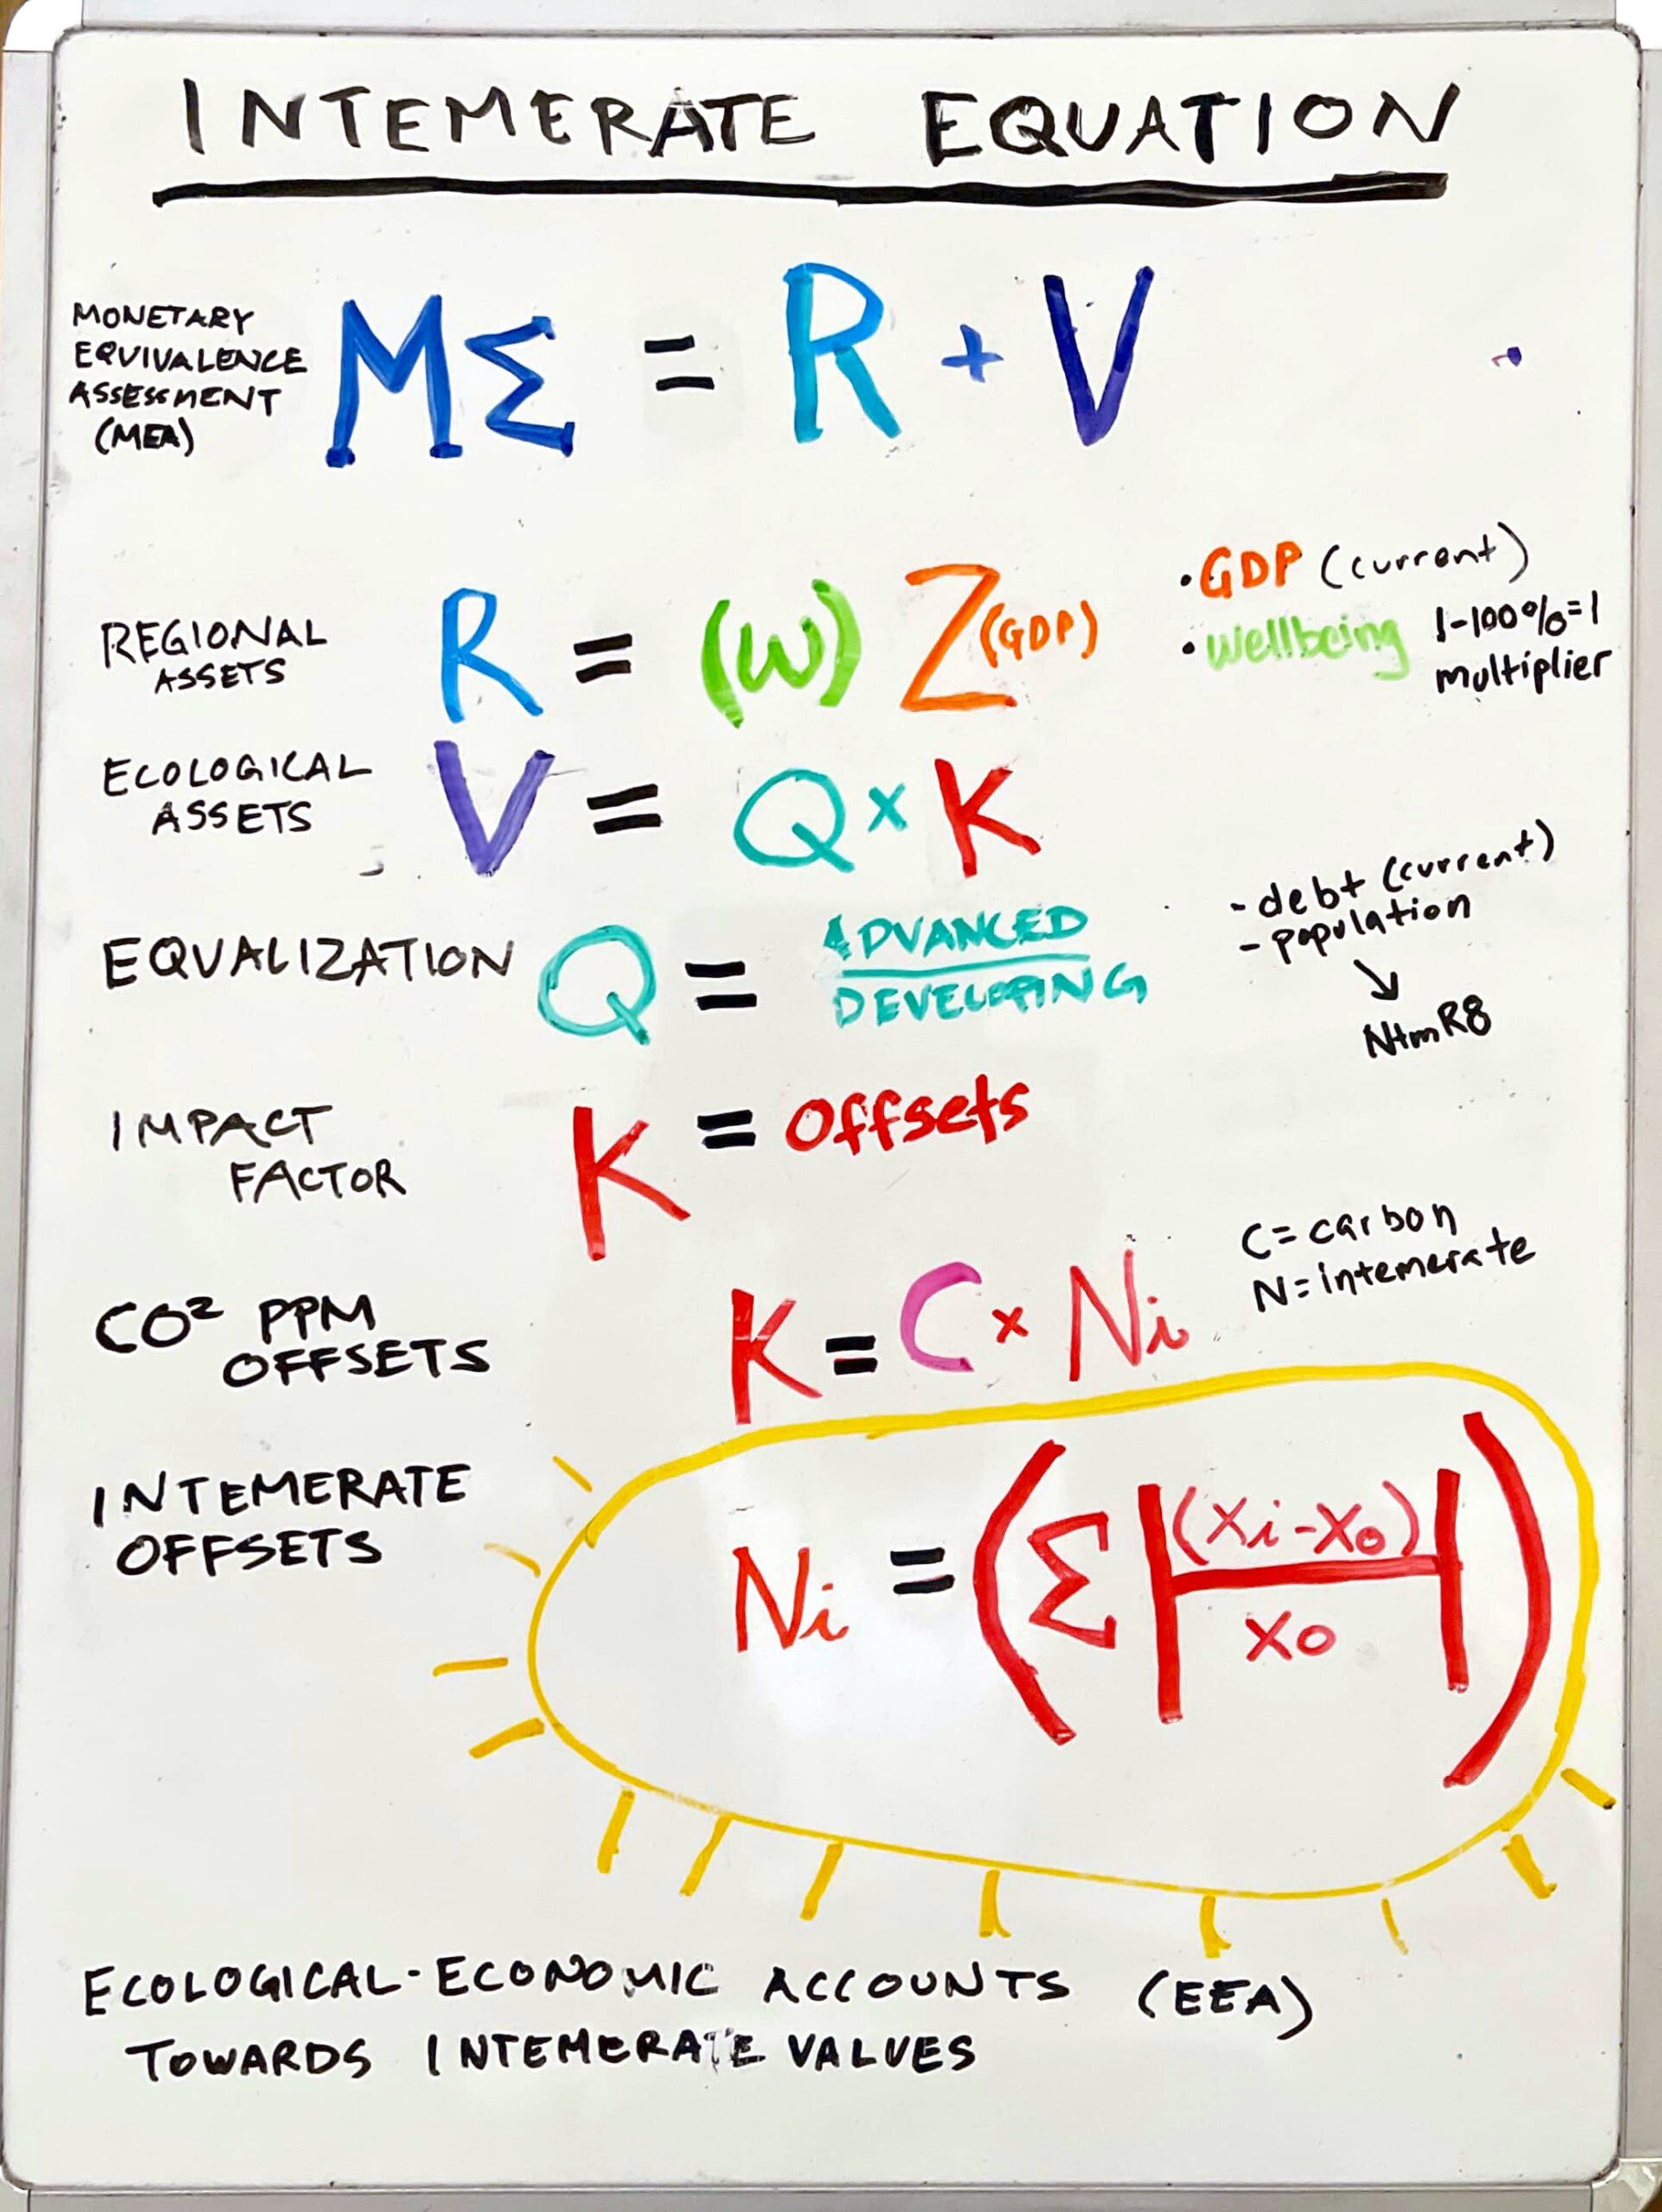 INTEMERATE EQUATION
MONETARY
EQUIVALENCE
ASSESSMENT
(MEA)
MΣ = R + V
REGIONAL
ASSETS
R = (W) Z(GDP)
• GDP (current)
• Wellbeing 1-100%=1
multiplier
ECOLOGICAL
ASSETS
V = Q × K
EQUALIZATION
Q = ADVANCED
DEVELOPING
- debt (current)
- population
↘
NtmR8
IMPACT
FACTOR
K = Offsets
CO² PPM
OFFSETS
K = C × Ni
C = carbon
N = intemerate
INTEMERATE
OFFSETS
Ni = (Σ|(Xi-X0)
X0|)
ECOLOGICAL-ECONOMIC ACCOUNTS (EEA)
TOWARDS INTEMERATE VALUES